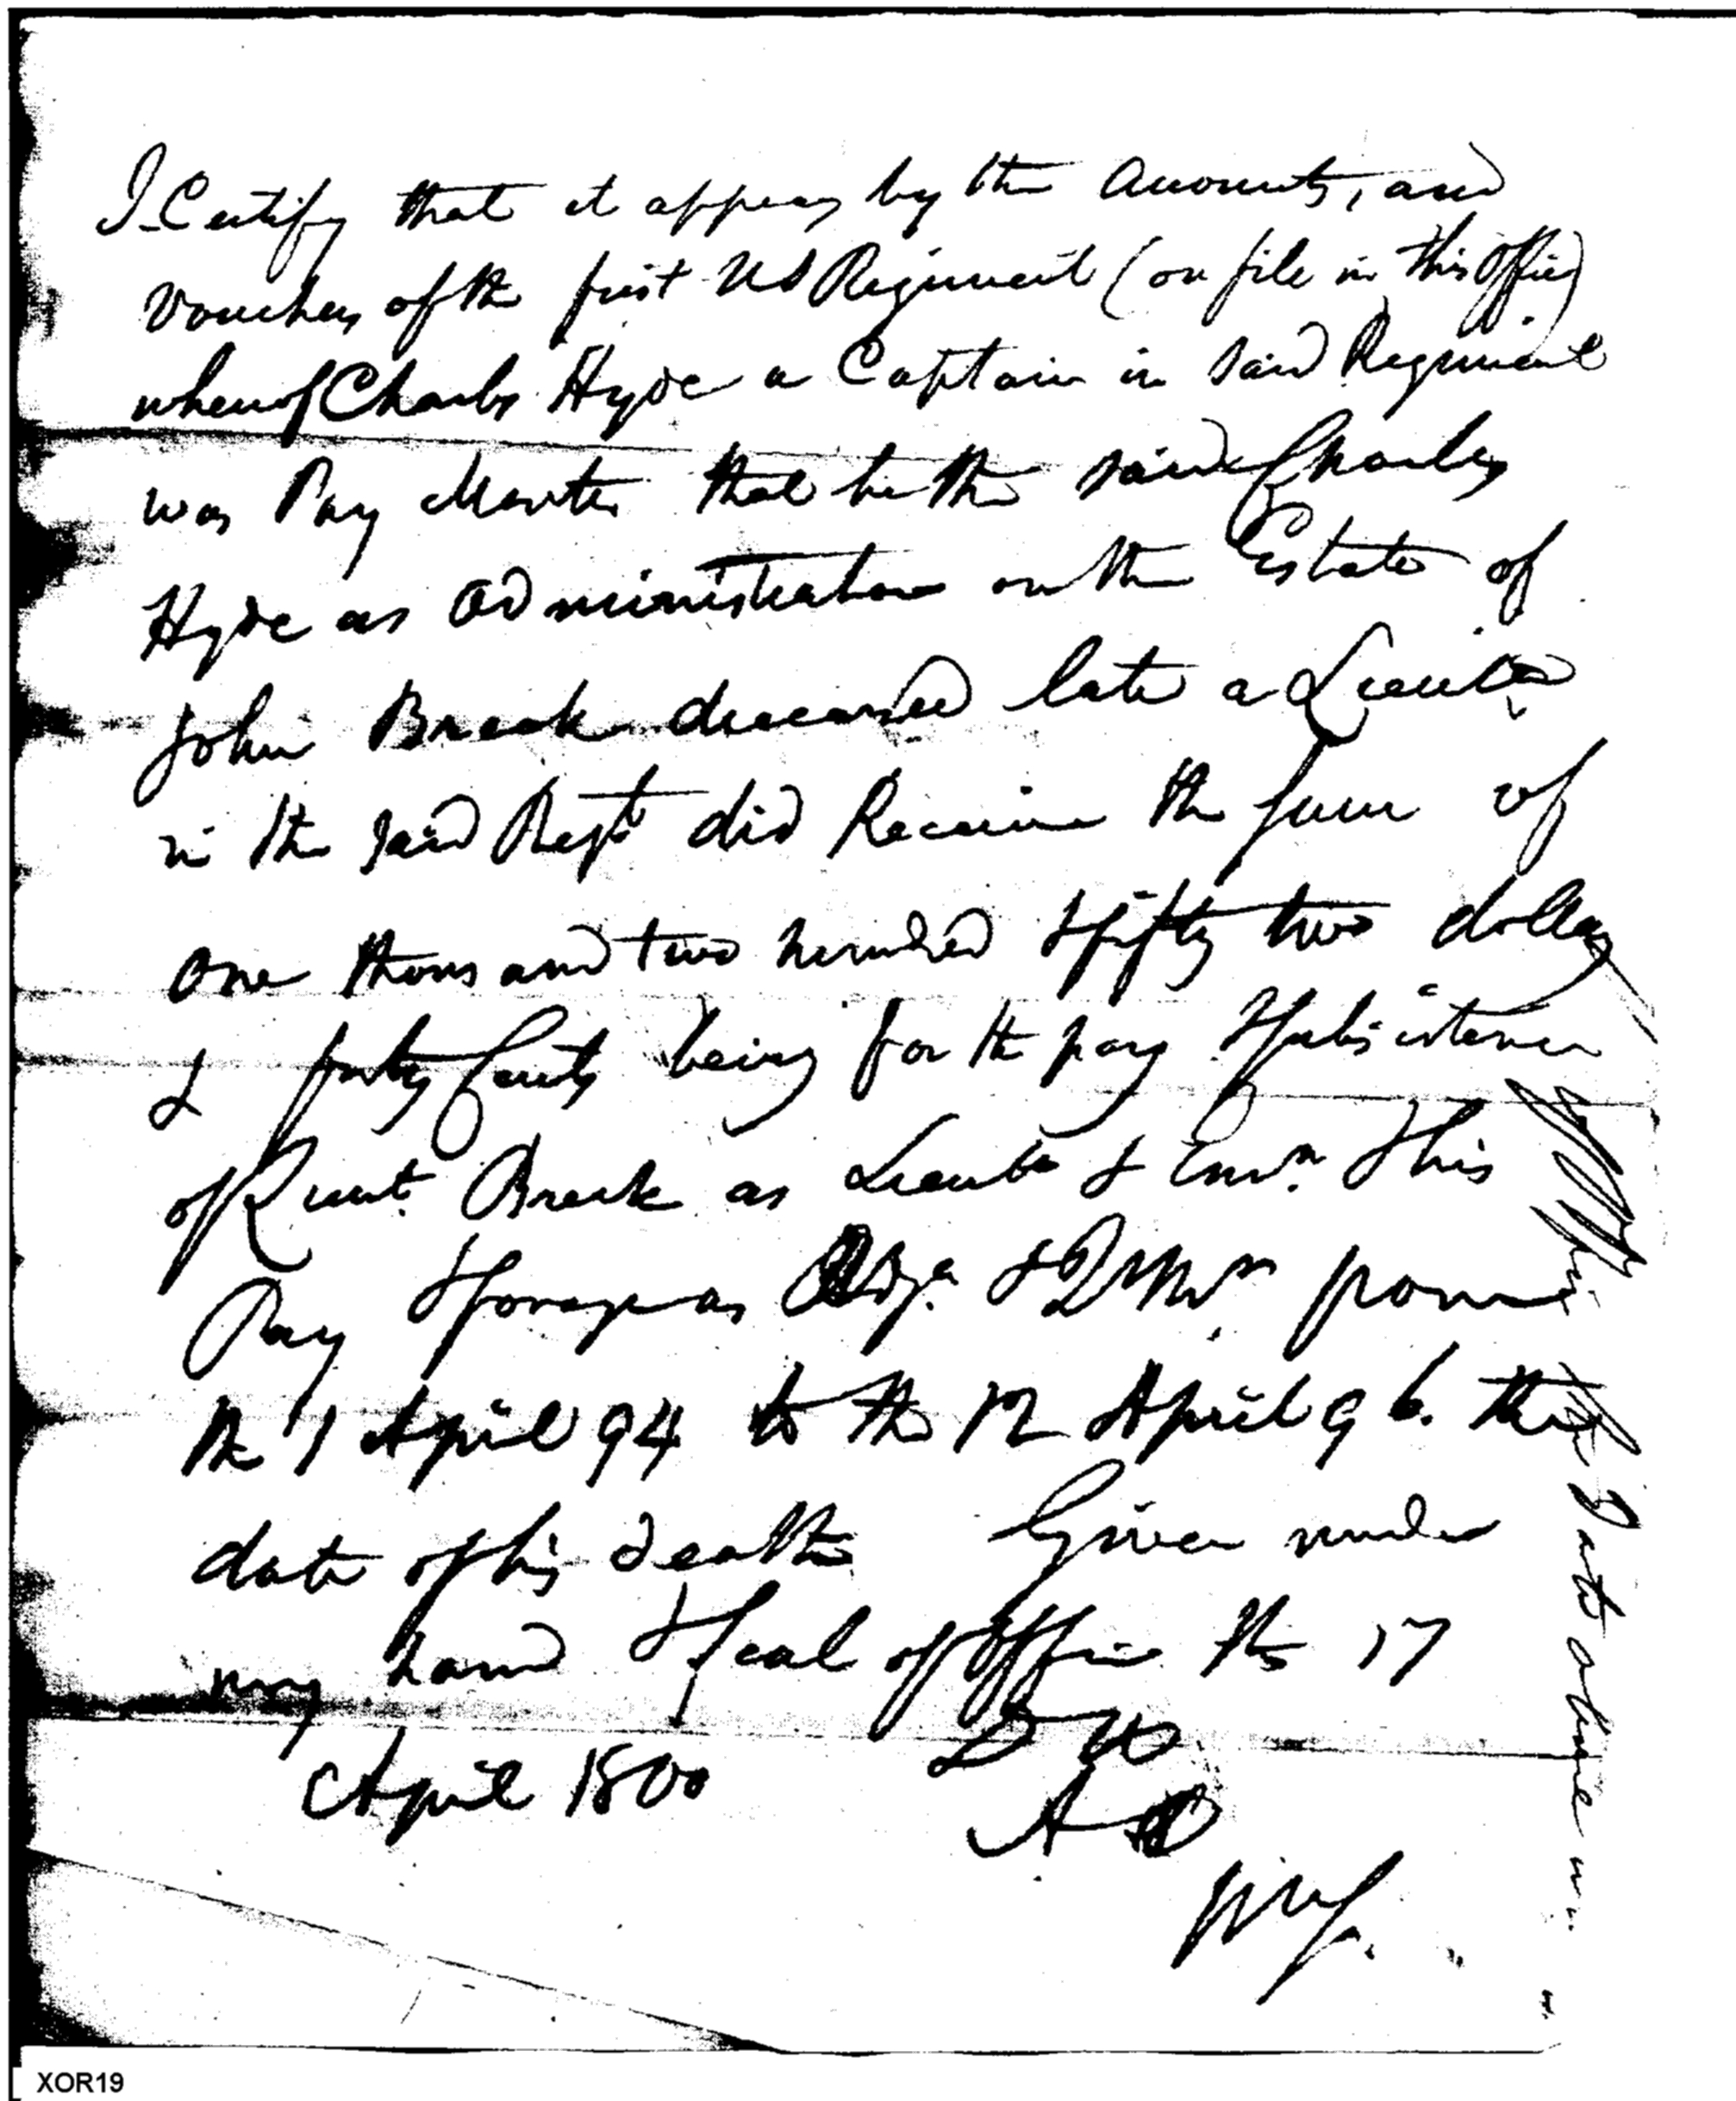 I Certify that it appears by the Accounts, and
Vouchers of the first US Regiment (on file in this Office)
whereof Charles Hyde a Captain in said Regiment
was Pay Master that he the said Charles
Hyde as administrator on the Estate of
John Breck deceased late a Lieut
in the said Regt did Receive the sum of
One thousand two hundred & fifty two dollars
& forty Cents being for the pay & subsistence
of Lieut. Breck as Lieut & his
Pay & forage as Adjt. & QMr from
the 1 April 94 to the 12 April 96. the
date of his death Given under
my hand & seal of Office the 17
April 1800
A
date above
XOR19